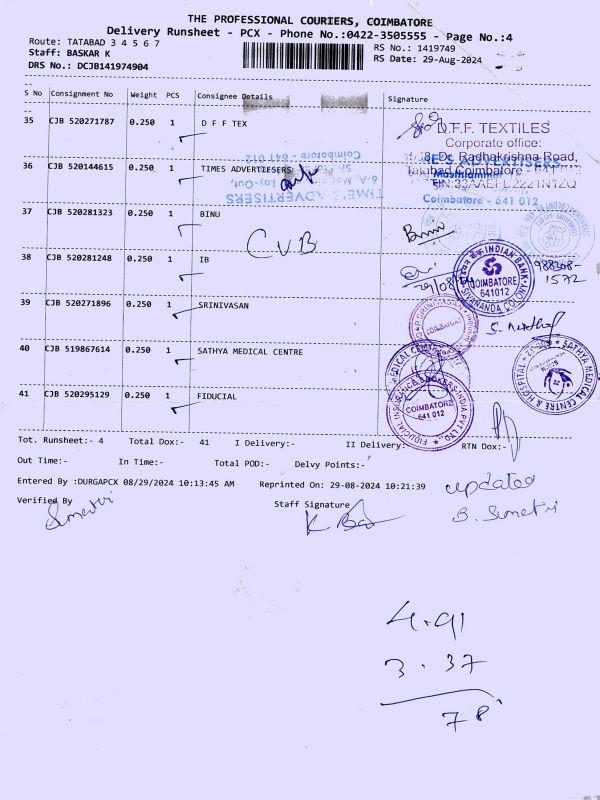 THE PROFESSIONAL COURIERS, COIMBATORE
Delivery Runsheet - PCX - Phone No.:0422-3505555 - Page No.:4
Route: TATABAD 3 4 5 6 7
RS No.: 1419749
Staff: BASKAR K
RS Date: 29-Aug-2024
DRS No.: DCJB141974904
S No Consignment No Weight PCS Consignee Details Signature
35 CJB 520271787 0.250 1 D F F TEX
D.F.F. TEXTILES
Corporate office:
Dr. Radhakrishna Road,
Tatabad Coimbatore - 641 012
36 CJB 520144615 0.250 1 TIMES ADVERTIESERS
TIME'S ADVERTISERS
Coimbatore - 641 012
37 CJB 520281323 0.250 1 BINU
Binu
CVB
38 CJB 520281248 0.250 1 IB
29/08/24
INDIAN BANK
COIMBATORE
641012
SIVANANDA COLONY
988208-
1572
39 CJB 520271896 0.250 1 SRINIVASAN
40 CJB 519867614 0.250 1 SATHYA MEDICAL CENTRE
SATHYA MEDICAL CENTRE & HOSPITAL
41 CJB 520295129 0.250 1 FIDUCIAL
FIDUCIAL INSURANCE BROKERS INDIA PVT LTD.
COIMBATORE
641 012
Tot. Runsheet:- 4 Total Dox:- 41 I Delivery:- II Delivery:- RTN Dox:-
Out Time:- In Time:- Total POD:- Delvy Points:-
Entered By :DURGAPCX 08/29/2024 10:13:45 AM Reprinted On: 29-08-2024 10:21:39
updated
Verified By
Staff Signature
B. Sumetri
Sumetri
4.41
3.37
78